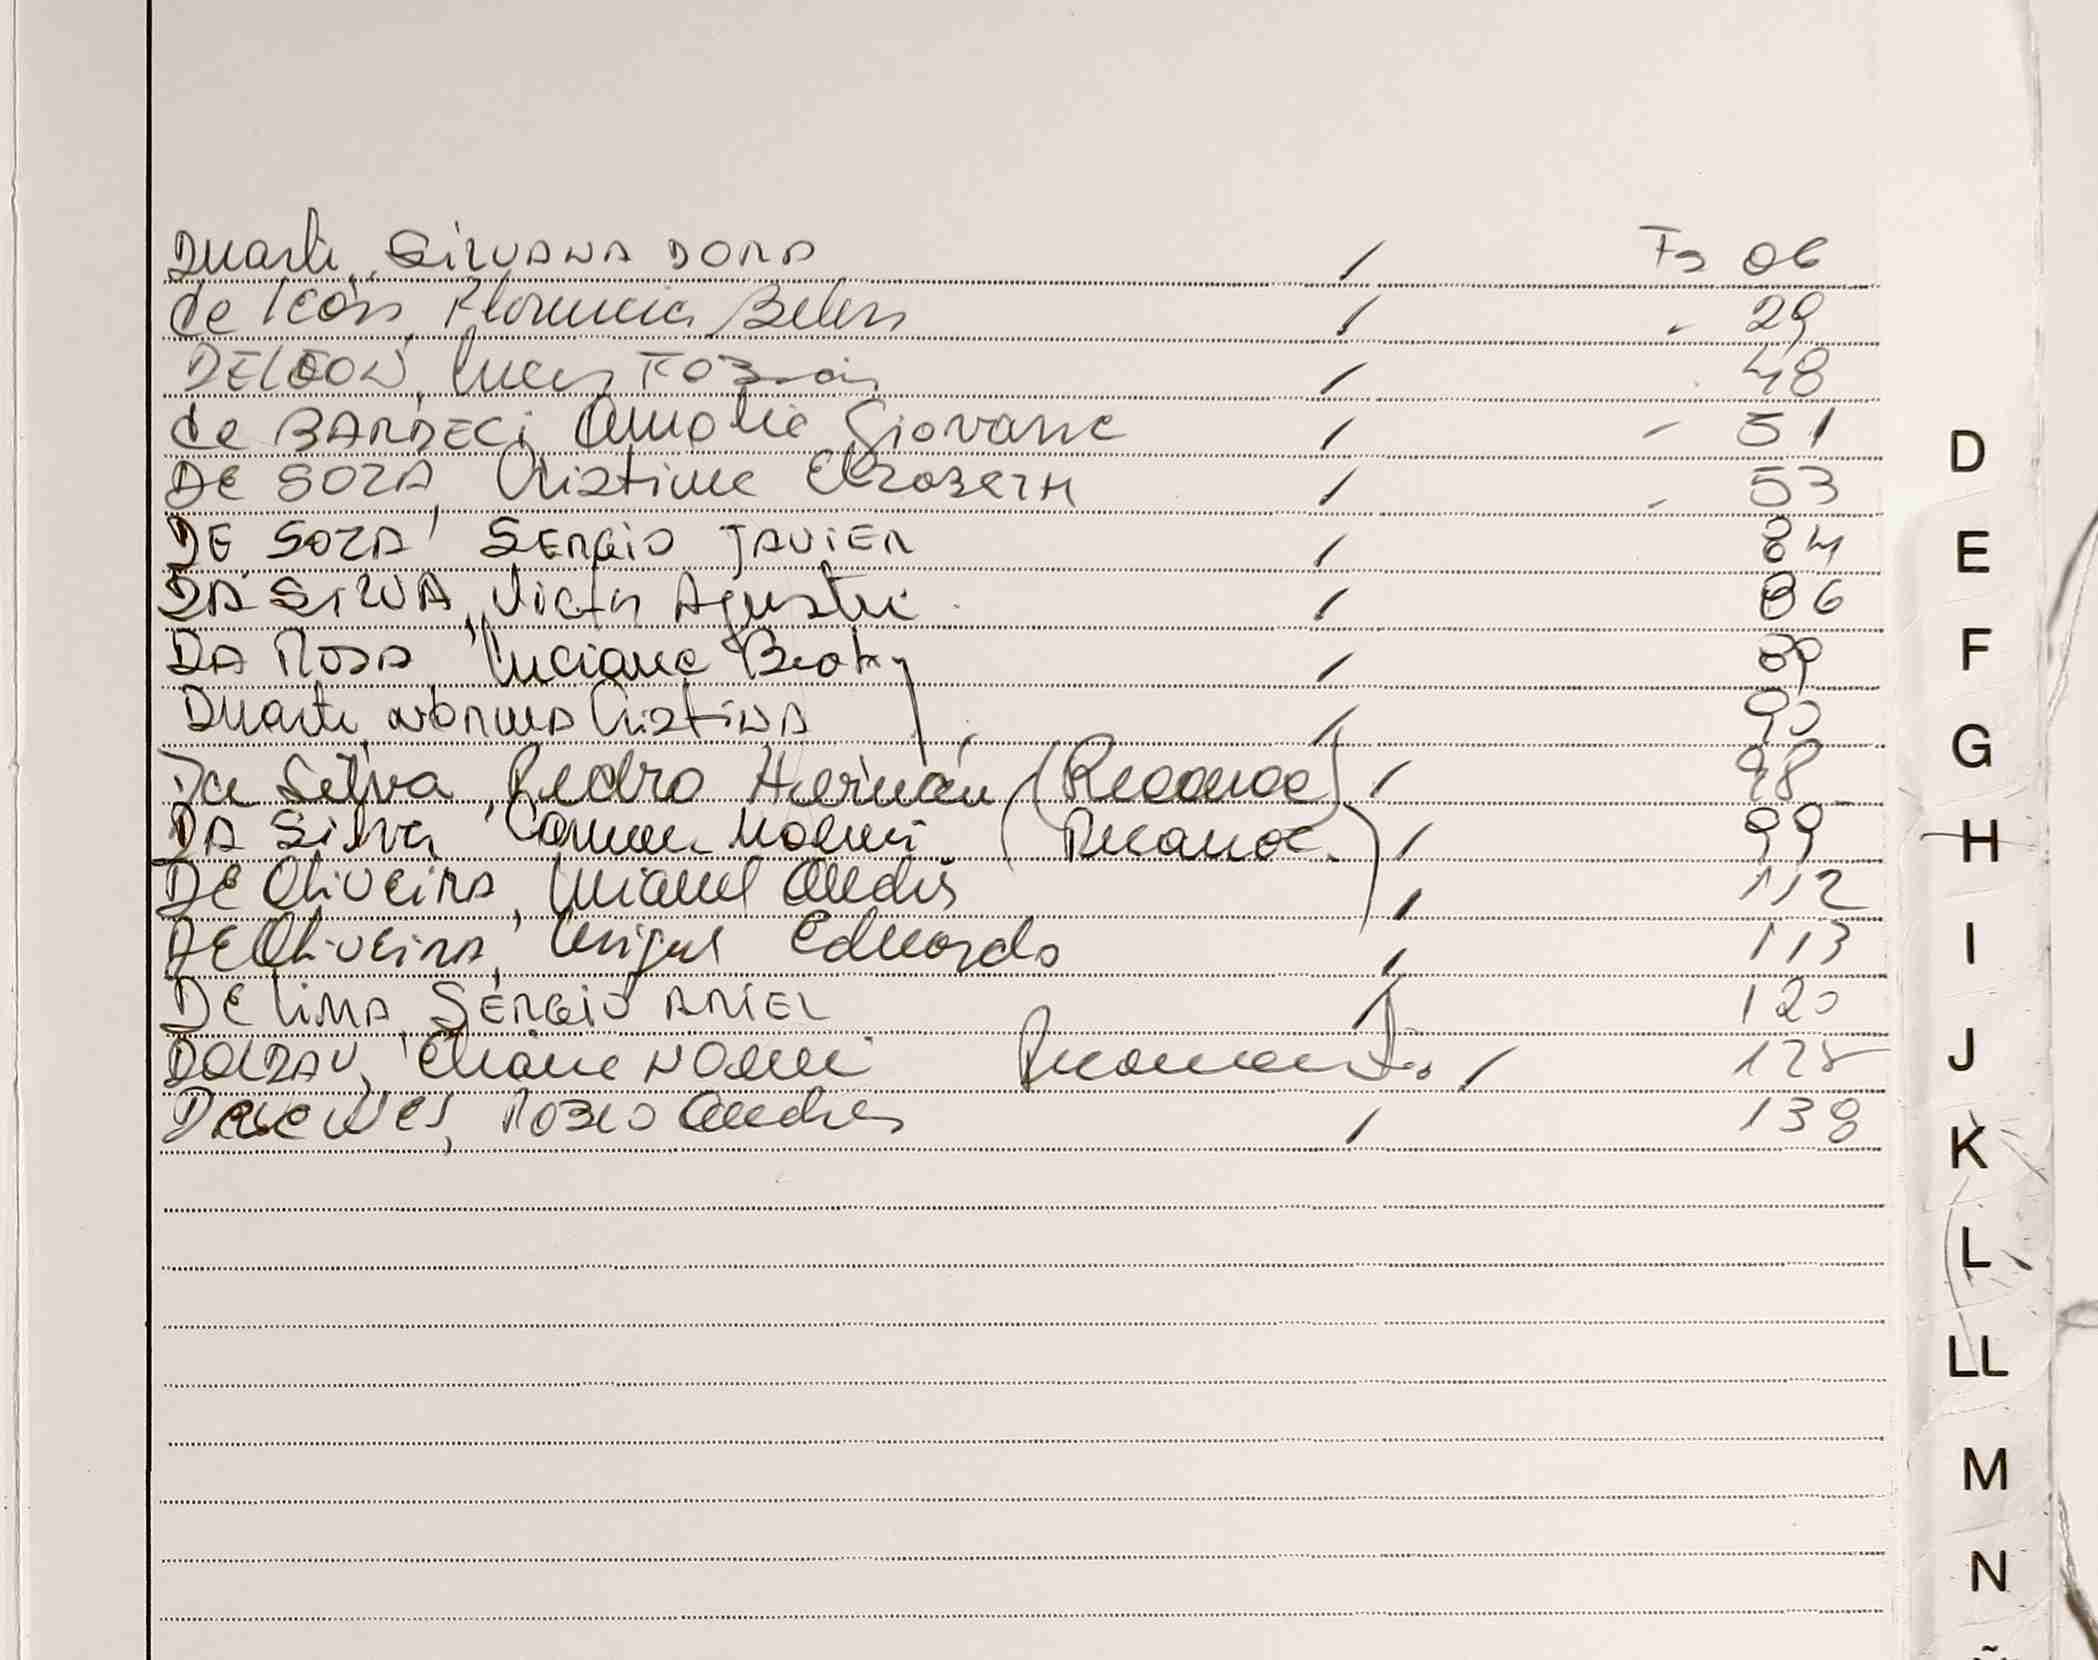 Duarte, SILVANA DORA / Fs 06
de León, Florencia Belen / - 29
DE LEON, Lucas FABIAN / 48
de BARDECI Amalia Giovana / - 51
DE SOZA, Cristina ELIZABETH / - 53
DE SOZA, SERGIO JAVIER / 84
DA SILVA, Victor Agustin / 86
DA ROSA, Luciana Beatriz / 89
Duarte, NORMA CRISTINA / 90
Da Silva, Pedro Hernán (Reconoc) / 98
DA Silva, Carmen Noemi (Reconoc.) / 99
DE Oliveira, Andrés / 112
DE Oliveira, Miguel Eduardo / 113
DE LIMA, SERGIO ARIEL / 120
Eliana NOEMI Reconocimiento /
PABLO Andres / 138
D
E
F
G
H
I
J
K
L
LL
M
N